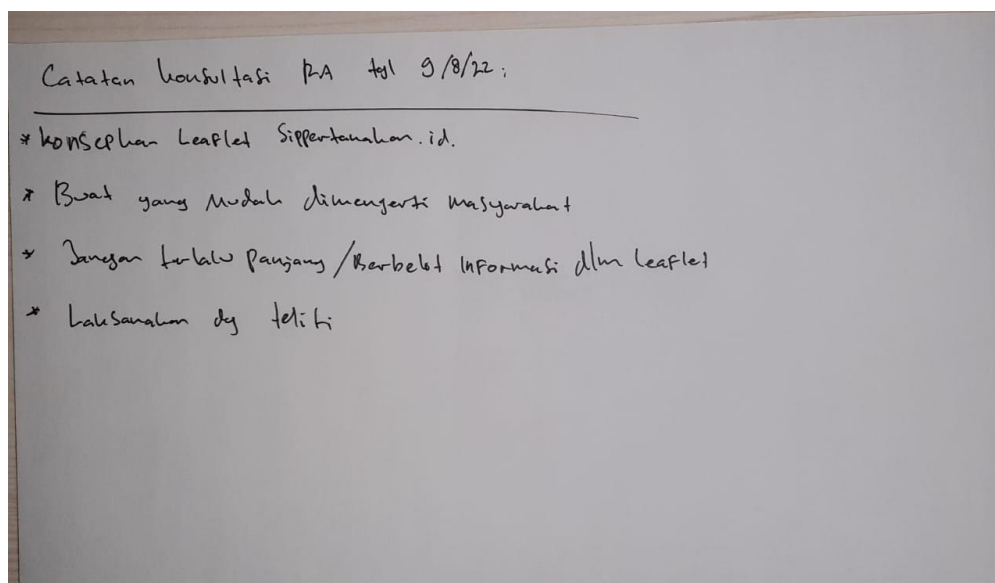 Catatan konsultasi RA tgl 9/8/22:
* Konsepkan Leaflet Sippertanahan.id.
* Buat yang Mudah dimengerti masyarakat
* Jangan terlalu panjang/Berbelit Informasi dlm leaflet
* Laksanakan dg teliti